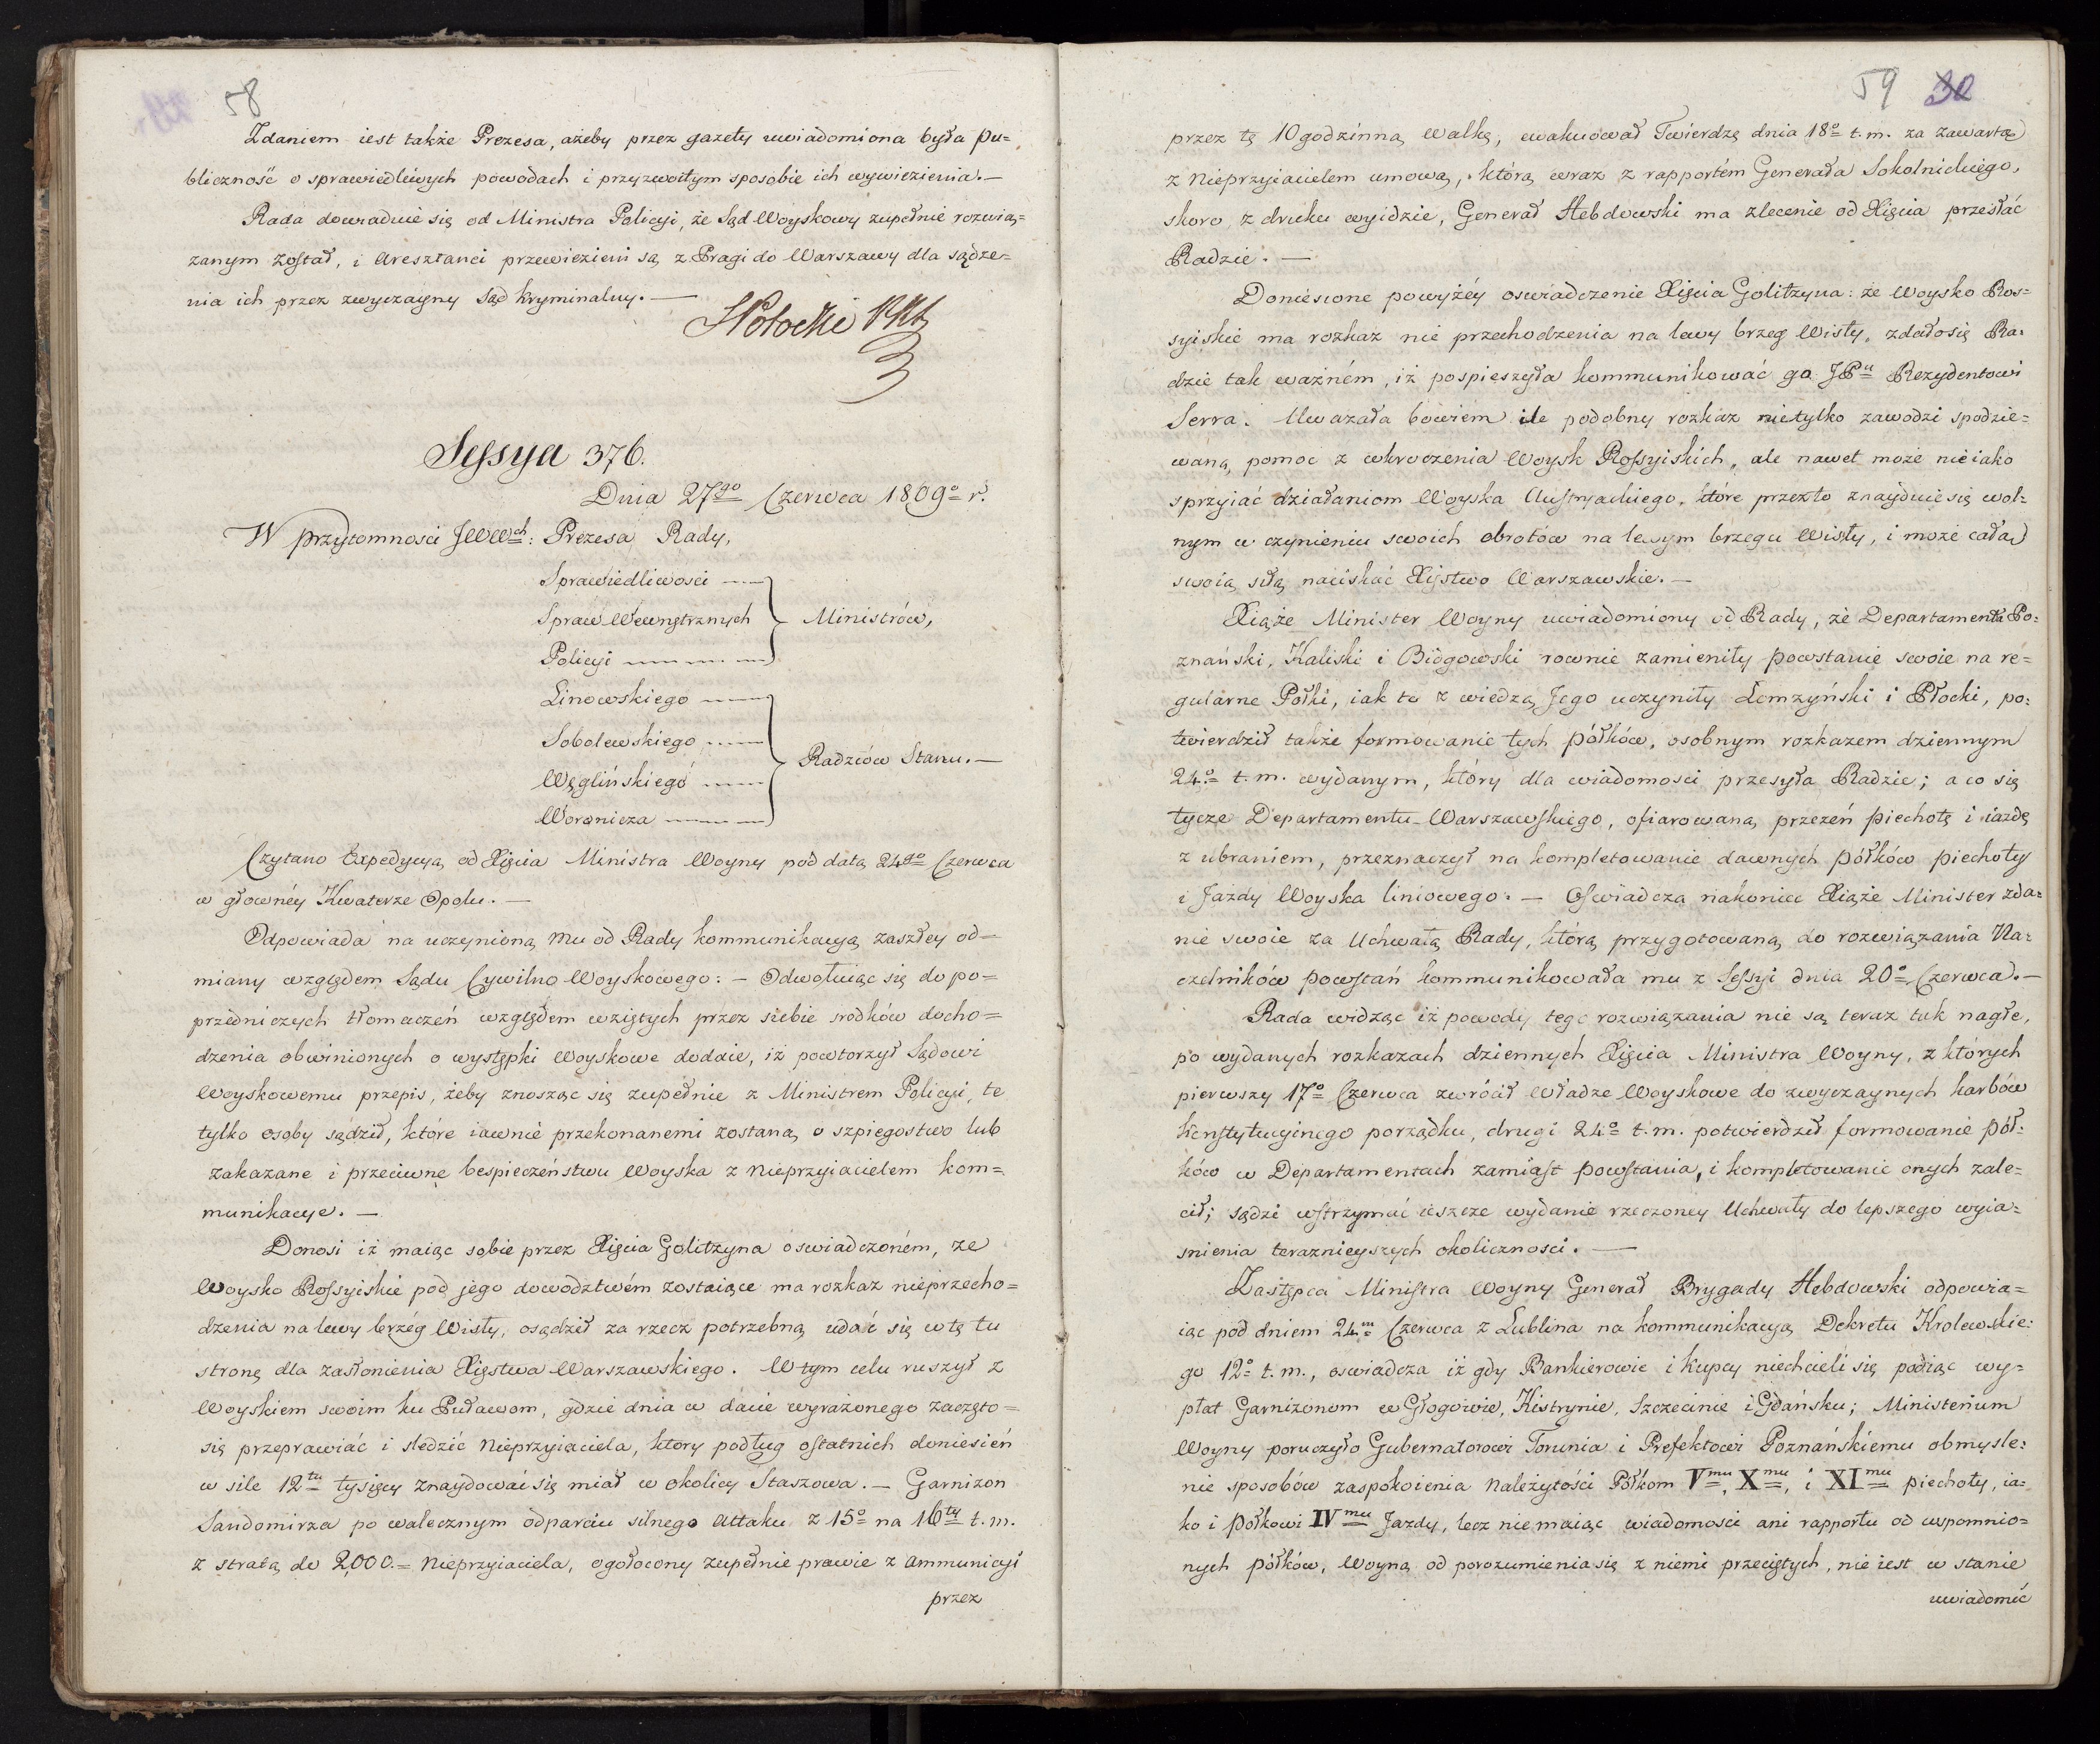 58
Zdaniem iest także Prezesa, ażeby przez gazety uwiadomiona była pu=
bliczność o sprawiedliwych powodach i przyzwoitym sposobie ich wywiezienia.—
Rada dowiaduie się od Ministra Policyi, że Sąd Woyskowy zupełnie rozwią=
zanym został, i Aresztanci przewiezieni są z Pragi do Warszawy dla sądze=
nia ich przez zwyczayny Sąd Kryminalny.—
Potocki
Sessya 376.
Dnia 27go Czerwca 1809o r.
W przytomności JWWch: Prezesa Rady,
Sprawiedliwości
Spraw Wewnętrznych
Ministrów,
Policyi
Linowskiego
Sobolewskiego
Radzców Stanu.—
Węglińskiego
Woronicza
Czytano Expedycyą od Xięcia Ministra Woyny pod datą 24go Czerwca
w głównéy Kwaterze Opolu.—
Odpowiada na uczynioną mu od Rady kommunikacyą zaszłey od=
miany względem Sądu Cywilno Woyskowego: — Odwołuiąc się do po=
przedniczych tłomaczeń względem wziętych przez siebie srodków docho=
dzenia obwinionych o występki Woyskowe dodaie, iż powtorzył Sądowi
Woyskowemu przepis, żeby znosząc się zupełnie z Ministrem Policyi, te
tylko osoby sądził, które iawnie przekonanemi zostaną o szpiegostwo lub
zakazane i przeciwne bespieczeństwu Woyska z Nieprzyiacielem kom=
munikacye.—
Donosi iż maiąc sobie przez Xięcia Golitzyna oswiadczoném, że
Woysko Rossyiskie pod jego dowodztwém zostaiące ma rozkaz nieprzecho=
dzenia na lewy brzég Wisły, osądził za rzecz potrzebną udać się w tę tu
stronę dla zasłonienia Xięstwa Warszawskiego. W tym celu ruszył z
Woyskiem swoim ku Puławom, gdzie dnia w dacie wyrażonego zaczęto=
się przeprawiać i sledzić Nieprzyiaciela, ktory podług ostatnich doniesień
w sile 12tu tysięcy znaydować się miał w okolicy Staszowa.— Garnizon
Sandomirza po walecznym odparciu silnego Attaku z 15o na 16ty t.m.
z stratą do 2,000.= Nieprzyiaciela, ogołocony zupełnie prawie z Ammunicyi
przez
59 30
przez tę 10godzinną walkę, ewakuował Twierdzę dnia 18o t.m. za zawartą
z Nieprzyiacielem umową, którą wraz z rapportém Generała Sokolnickiego,
skoro z druku wyidzie, Generał Hebdowski ma zlecenie od Xięcia przesłać
Radzie.—
Doniesione powyżéy oswiadczenie Xięcia Golitzyna: że Woysko Ros=
syiskie ma rozkaz nie przechodzenia na lewy brzeg Wisły, zdało się Ra=
dzie tak ważném, iż pospieszyła kommunikować go JPu Rezydentowi
Serra. Uważała bowiem ile podobny rozkaz nietylko zawodzi spodzie=
waną pomoc z wkroczenia Woysk Rossyiskich, ale nawet może nieiako
sprzyiać działaniom Woyska Austryackiego, które przez to znayduie się wol=
nym w czynieniu swoich obrotów na lewym brzegu Wisły, i może całą
swoią siłą naciskać Xięstwo Warszawskie.—
Xiąże Minister Woyny uwiadomiony od Rady, że Departamenta Po=
znański, Kaliski i Bidgowski rownie zamieniły powstanie swoie na re=
gularne Pułki, iak to z wiedzą Jego uczyniły Łomzyński i Płocki, po=
twierdził także formowanie tych półków, osobnym rozkazem dziennym
24o t.m. wydanym, który dla wiadomosci przesyła Radzie; a co się
tycze Departamentu Warszawskiego, ofiarowaną przezeń piechotę i iazdę
z ubraniem, przeznaczył na kompletowanie dawnych półków piechoty
i Jazdy Woyska liniowego.— Oswiadcza nakoniec Xiąże Minister zda=
nie swoie za Uchwałą Rady, którą przygotowaną do rozwiązania Na=
czelników powstań kommunikowała mu z Sessyi dnia 20o Czerwca.—
Rada widząc iż powody tego rozwiązania nie są teraz tak nagłe,
po wydanych rozkazach dziennych Xięcia Ministra Woyny, z których
pierwszy 17o Czerwca zwrócił Władze Woyskowe do zwyczaynych karbów
Konstytucyinego porządku, drugi 24o t.m. potwierdził formowanie pół=
ków w Departamentach zamiast powstania, i kompletowanie onych zale=
cił; sądzi wstrzymać ieszcze wydanie rzeczoney Uchwały do lepszego wyia=
snienia teraznieyszych okoliczności.—
Zastępca Ministra Woyny Generał Brygady Hebdowski odpowia=
iąc pod dniem 24m Czerwca z Lublina na kommunikacyą Dekretu Krolewskie=
go 12o t.m., oswiadcza iż gdy Bankierowie i kupcy niechcieli się podiąc wy=
płat Garnizonom w Głogowie, Kistrynie, Szczecinie i Gdańsku; Ministerium
Woyny poruczyło Gubernatorowi Torunia i Prefektowi Poznańskiemu obmysle=
nie sposobów zaspokoienia Należytości Półkom Vmu, Xmu, i XImu piechoty, ia=
ko i półkowi IVmu Jazdy, lecz nie maiąc wiadomosci ani rapportu od wspomnio=
nych półków, Woyną od porozumienia się z niemi przeciętych, nie iest w stanie
uwiadomić